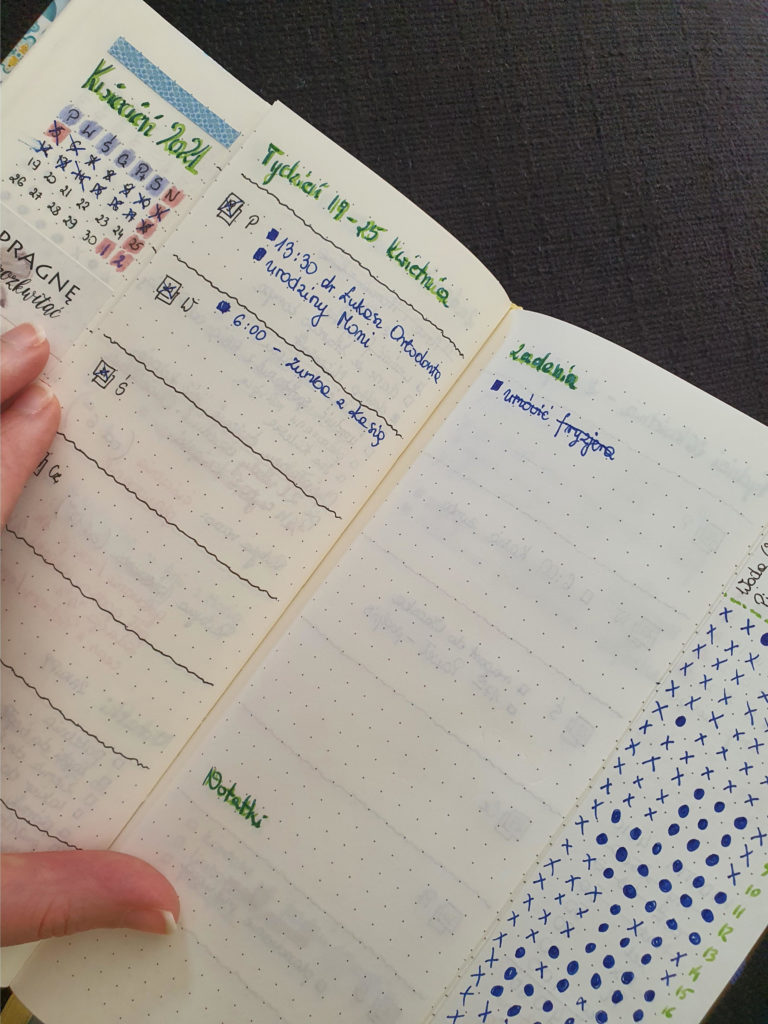 Kwiecień 2021
P W Ś C P S N
19 20 21 22 23 24 25
26 27 28 29 30 1 2
PRAGNĘ
rozkwitać
Tydzień 19-25 kwietnia
P
13:30 dr Łukasz Ortodonta
urodziny Moni
W
6:00 - Zumba z Kasią
Ś
Cz
Zadania
umówić fryzjera
Notatki
Woda
10
11
12
13
14
15
16